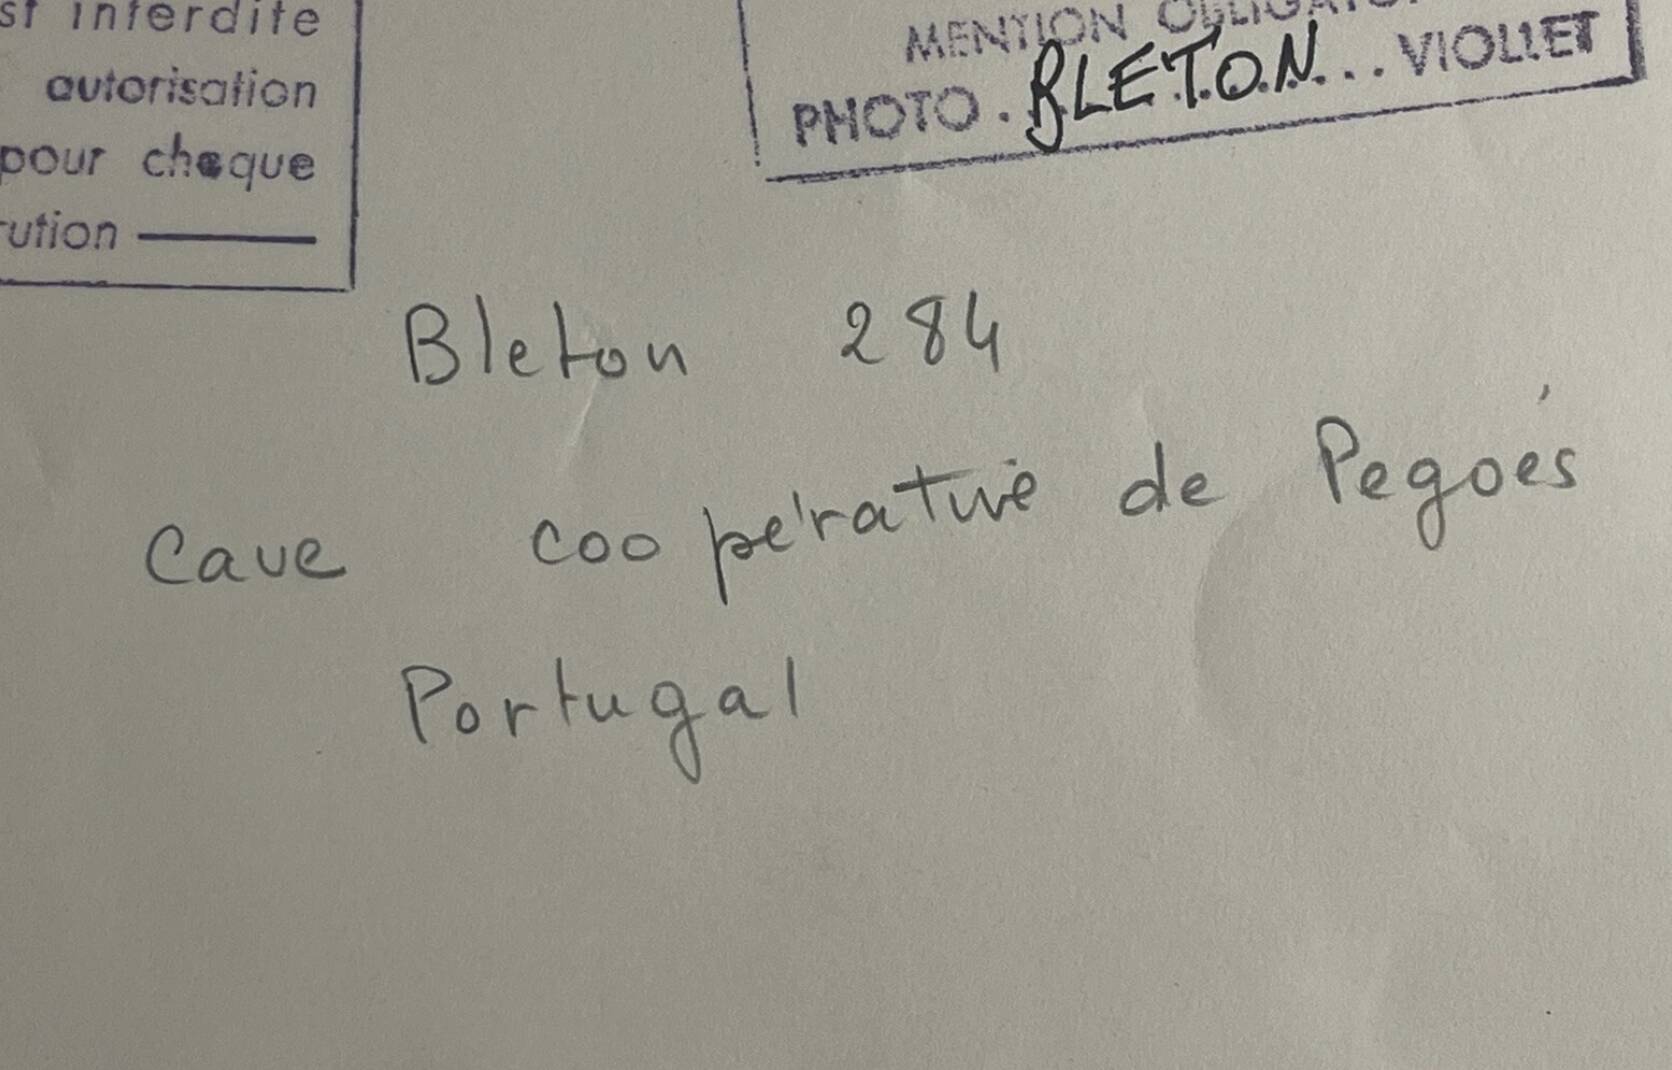 st interdite
autorisation
pour chaque
rution
MENTION OBLIGATO
PHOTO. BLETON... VIOLLET
Bleton 284
Cave coopérative de Pegoés
Portugal